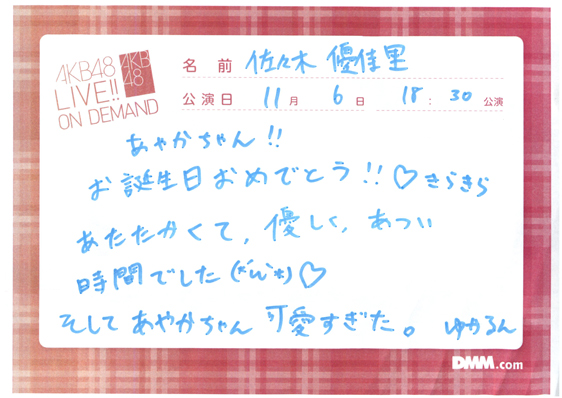 AKB48
LIVE!!
ON DEMAND
AKB
48
名 前 佐々木 優佳里
公演日 11月 6日 18:30 公演
あやかちゃん!!
お誕生日おめでとう!!♡きらきら
あたたかくて、優しく、あつい
時間でした(*´ω`*)♡
そして あやかちゃん 可愛すぎた。 ゆかるん
DMM.com